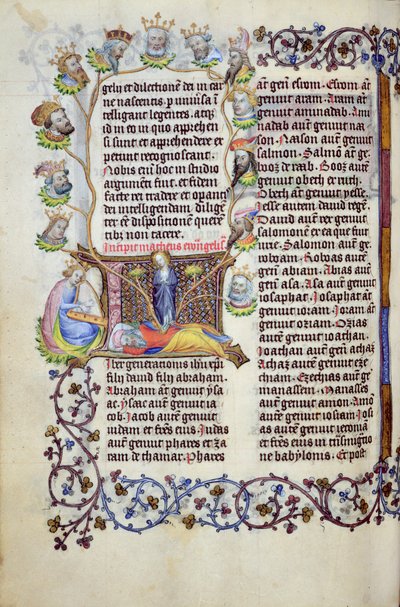 gelu et dilectione dei in car
ne nascentis p universa
telligant legentes. atqz
id in eo in quo apprehen
si sunt et apprehendere ex
petunt recognoscant.
Nobis eni hoc in studio
argumenti fuit. et fidem
facte rei tradere et opandi
dei intelligendam diligen
ter eē dispositione queren
tibz non tacere.
Incipit matheus ewangelis
Liber generationis ihu xpi
filij david filij abraham.
Abraham aut genuit ysa
ac. ysaac aut genuit ia
cob. Jacob autē genuit
iudam et fratres eius. Judas
autē genuit phares et za
ram de thamar. Phares
aut genuit esrom. Esrom aut
genuit aram. Aram aut
genuit aminadab. Amin
adab autē genuit naa
son. Naason autē genuit
salmon. Salmon aut ge.
booz de raab. Booz autē
genuit obeth ex ruth.
Obeth autē genuit yesse.
Jesse autem david regē.
David autē rex genuit
salomonem ex ea que fuit
urie. Salomon autē ge.
roboam. Roboas autē ge
genuit abiam. Abias aut
genuit asa. Asa autē genuit
iosaphat. Josaphat aut
genuit ioram. Joram aut
genuit oziam. Ozias
autē genuit ioathan.
Joathan autē genuit achaz
Achaz autē genuit eze
chiam. Ezechias autē ge.
manassen. Manasses
autē genuit amon. Amon
autē genuit iosiam. Josi
as autē genuit iechoniā
et fratres eius in transmigratio
ne babylonis. Et post